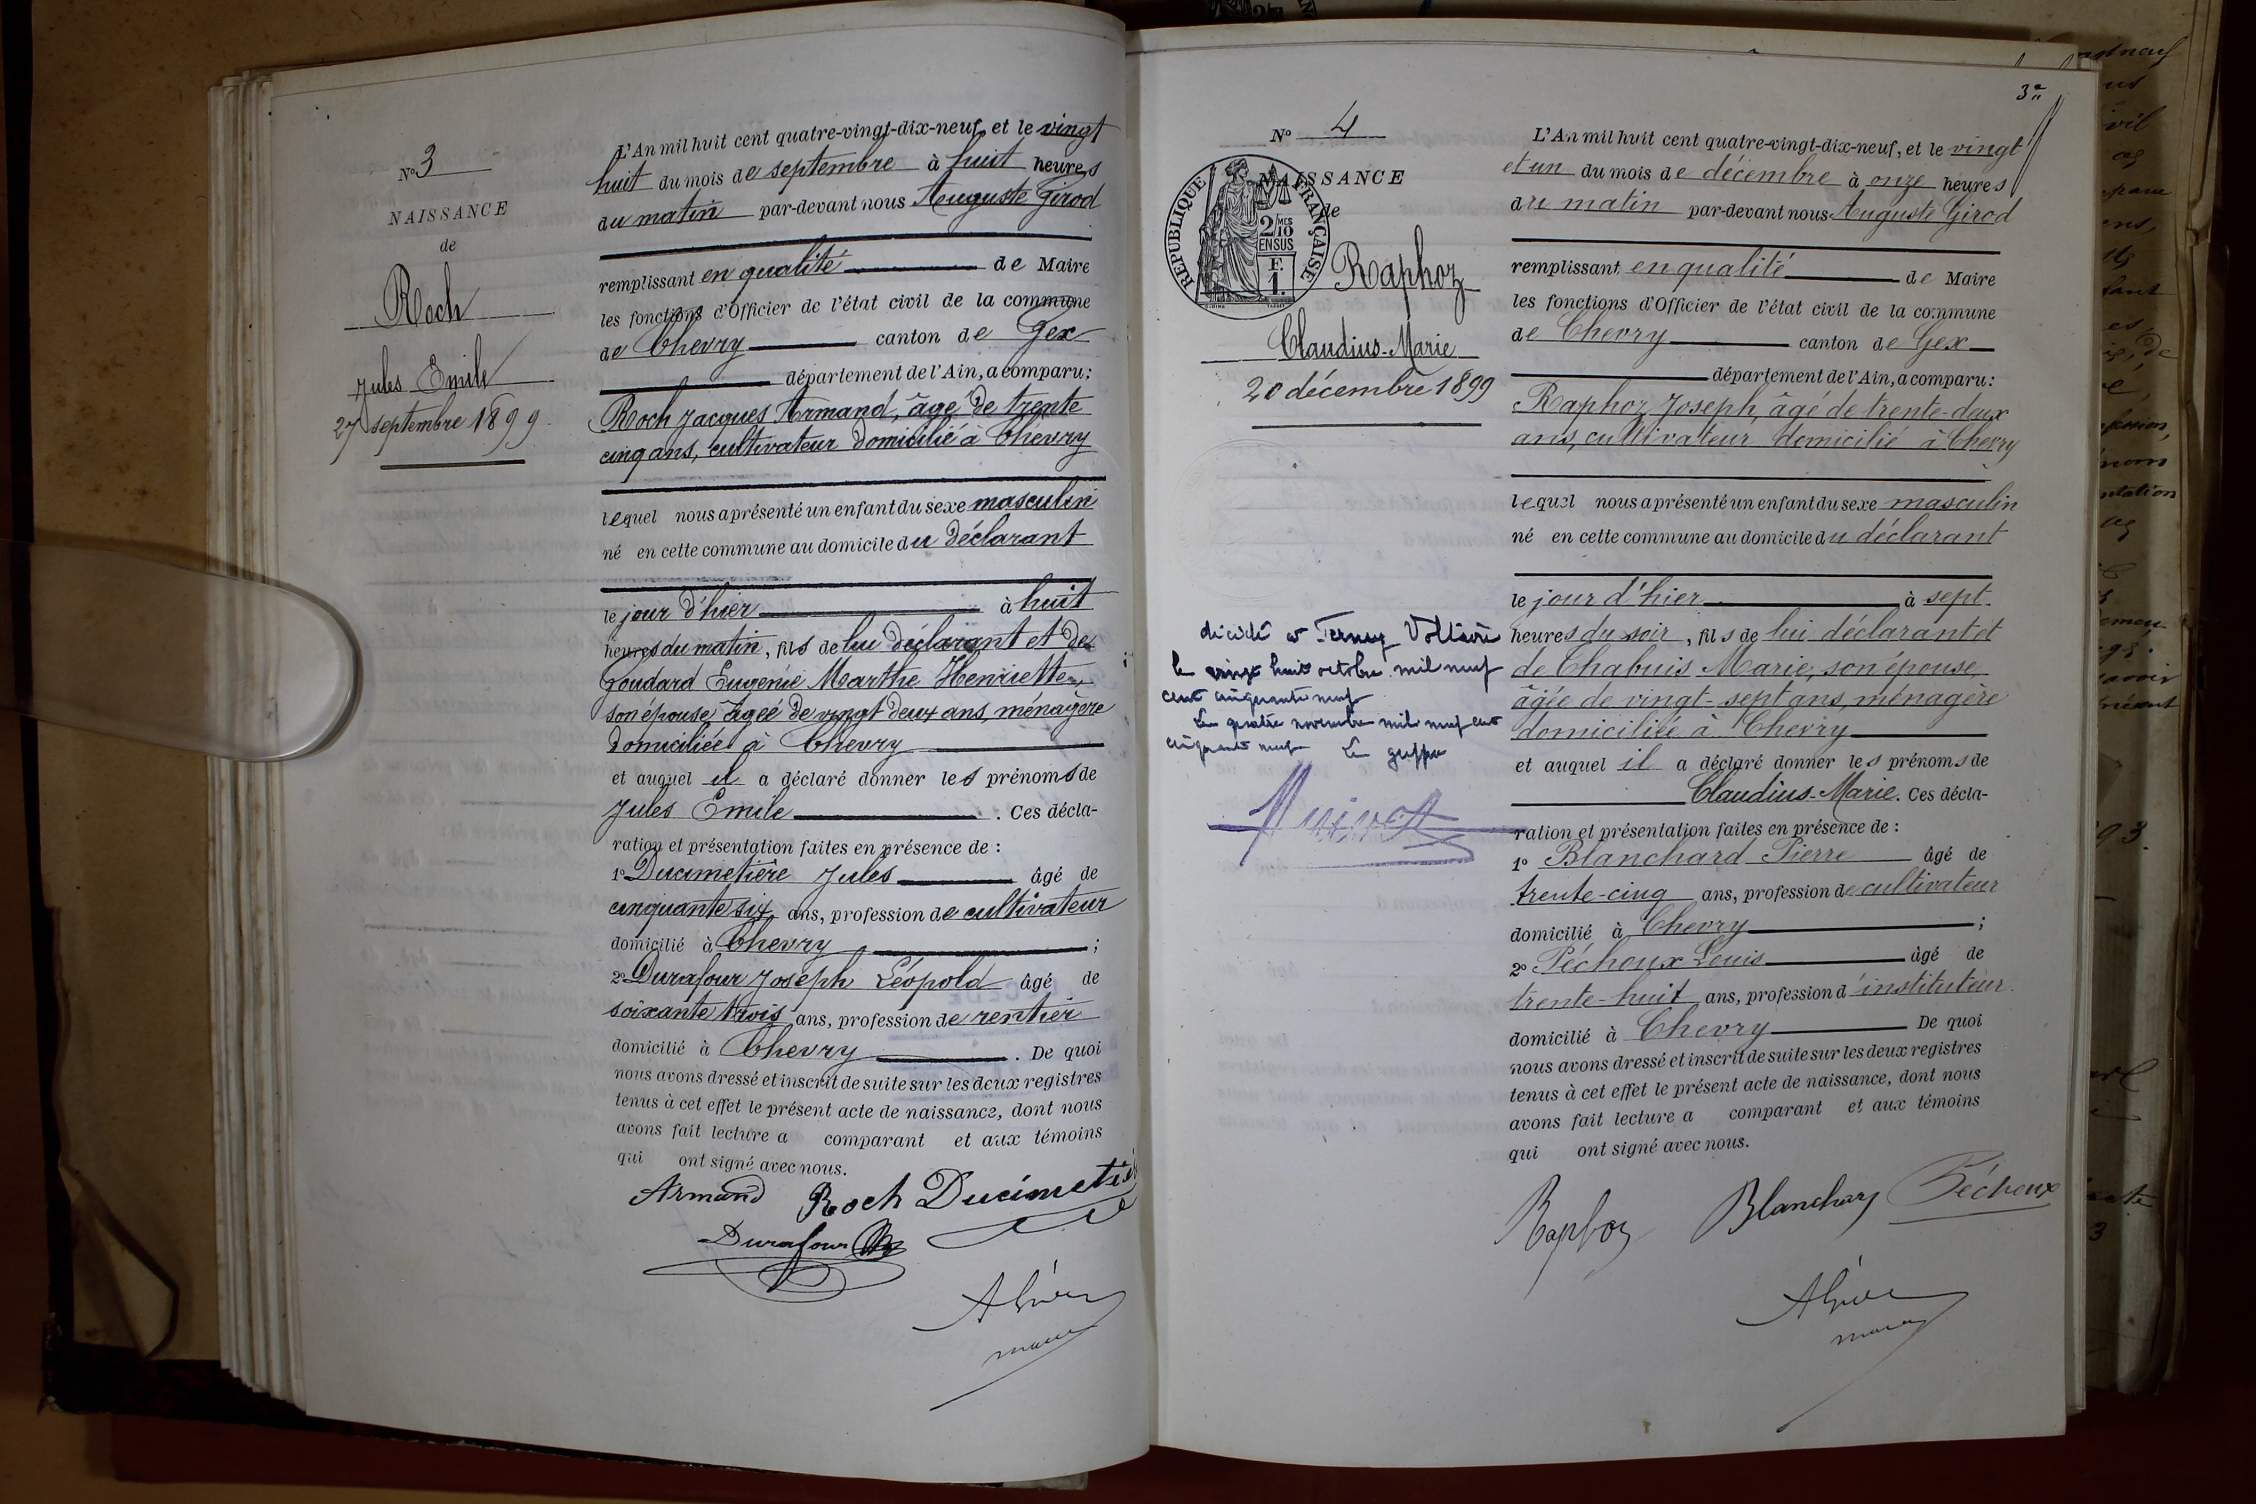 N° 3
NAISSANCE
de
Roch
Jules Emile
27 septembre 1899.
L'An mil huit cent quatre-vingt-dix-neuf, et le vingt
huit du mois de septembre à huit heures
du matin par-devant nous Auguste Girod
remplissant en qualité de Maire
les fonctions d'Officier de l'état civil de la commune
de Chevry canton de Gex
département de l'Ain, a comparu:
Roch Jacques Armand, âgé de trente
cinq ans, cultivateur domicilié à Chevry
lequel nous a présenté un enfant du sexe masculin
né en cette commune au domicile du déclarant
le jour d'hier à huit
heures du matin, fils de lui déclarant et de
Goudard Eugénie Marthe Henriette
son épouse, âgée de vingt deux ans, ménagère
domiciliée à Chevry
et auquel il a déclaré donner les prénoms de
Jules Emile. Ces décla-
ration et présentation faites en présence de :
1° Ducimetière Jules âgé de
cinquante six ans, profession de cultivateur
domicilié à Chevry ;
2° Durafour Joseph Léopold âgé de
soixante trois ans, profession de rentier
domicilié à Chevry. De quoi
nous avons dressé et inscrit de suite sur les deux registres
tenus à cet effet le présent acte de naissance, dont nous
avons fait lecture a comparant et aux témoins
qui ont signé avec nous.
Armand Roch Ducimetiè
Durafour
maire
3e
N° 4
NAISSANCE
de
REPUBLIQUE FRANÇAISE
2/10 MES
EN SUS
F.
1.
Raphoz
Claudius-Marie
20 décembre 1899
décédé à Ferney Voltaire
le vingt huit octobre mil neuf
cent cinquante neuf
Le quatre novembre mil neuf cent
cinquante neuf Le greffier
L'An mil huit cent quatre-vingt-dix-neuf, et le vingt
et un du mois de décembre à onze heures
du matin par-devant nous Auguste Girod
remplissant en qualité de Maire
les fonctions d'Officier de l'état civil de la commune
de Chevry canton de Gex
département de l'Ain, a comparu:
Raphoz Joseph, âgé de trente-deux
ans, cultivateur, domicilié à Chevry
lequel nous a présenté un enfant du sexe masculin
né en cette commune au domicile du déclarant
le jour d'hier à sept
heures du soir, fils de lui déclarant et
de Chabuis Marie, son épouse,
âgée de vingt-sept ans, ménagère
domiciliée à Chevry
et auquel il a déclaré donner les prénoms de
Claudius-Marie. Ces décla-
ration et présentation faites en présence de :
1° Blanchard Pierre âgé de
trente-cinq ans, profession de cultivateur
domicilié à Chevry ;
2° Péchoux Louis âgé de
trente-huit ans, profession d'instituteur
domicilié à Chevry De quoi
nous avons dressé et inscrit de suite sur les deux registres
tenus à cet effet le présent acte de naissance, dont nous
avons fait lecture a comparant et aux témoins
qui ont signé avec nous.
Raphoz Blanchard Péchoux
maire